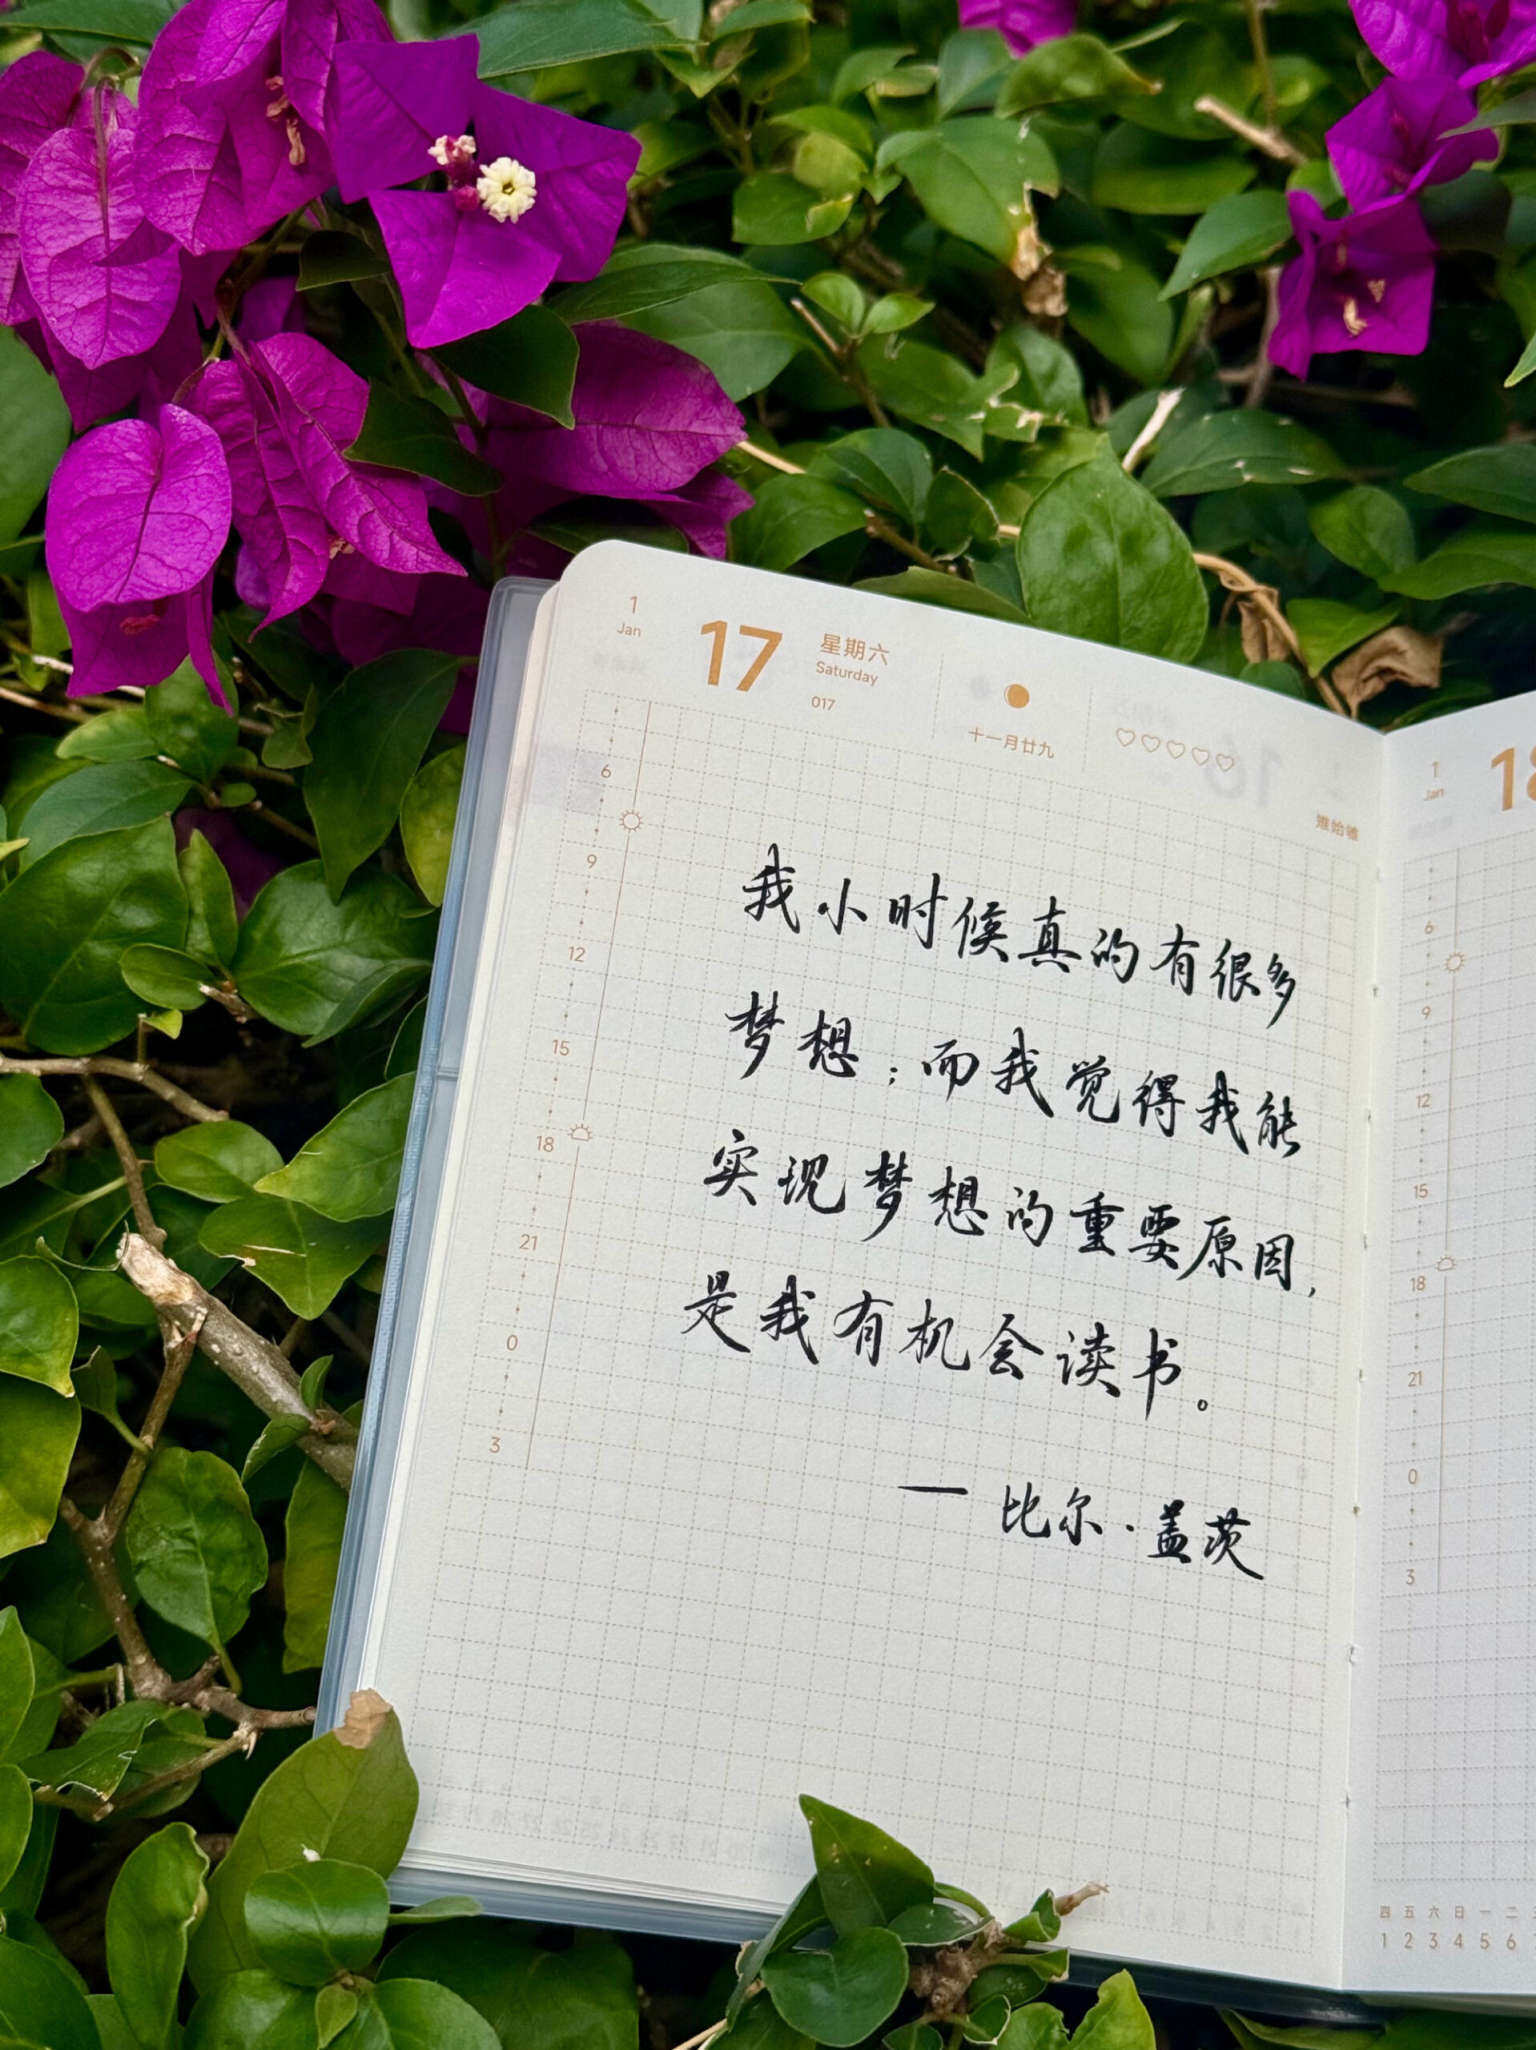 1
Jan
17
星期六
Saturday
017
十一月廿九
雉始雊
6
9
12
15
18
21
0
3
我小时候真的有很多
梦想；而我觉得我能
实现梦想的重要原因，
是我有机会读书。
— 比尔·盖茨
1
Jan
18
6
9
12
15
18
21
0
3
四 五 六 日 一 二
1 2 3 4 5 6